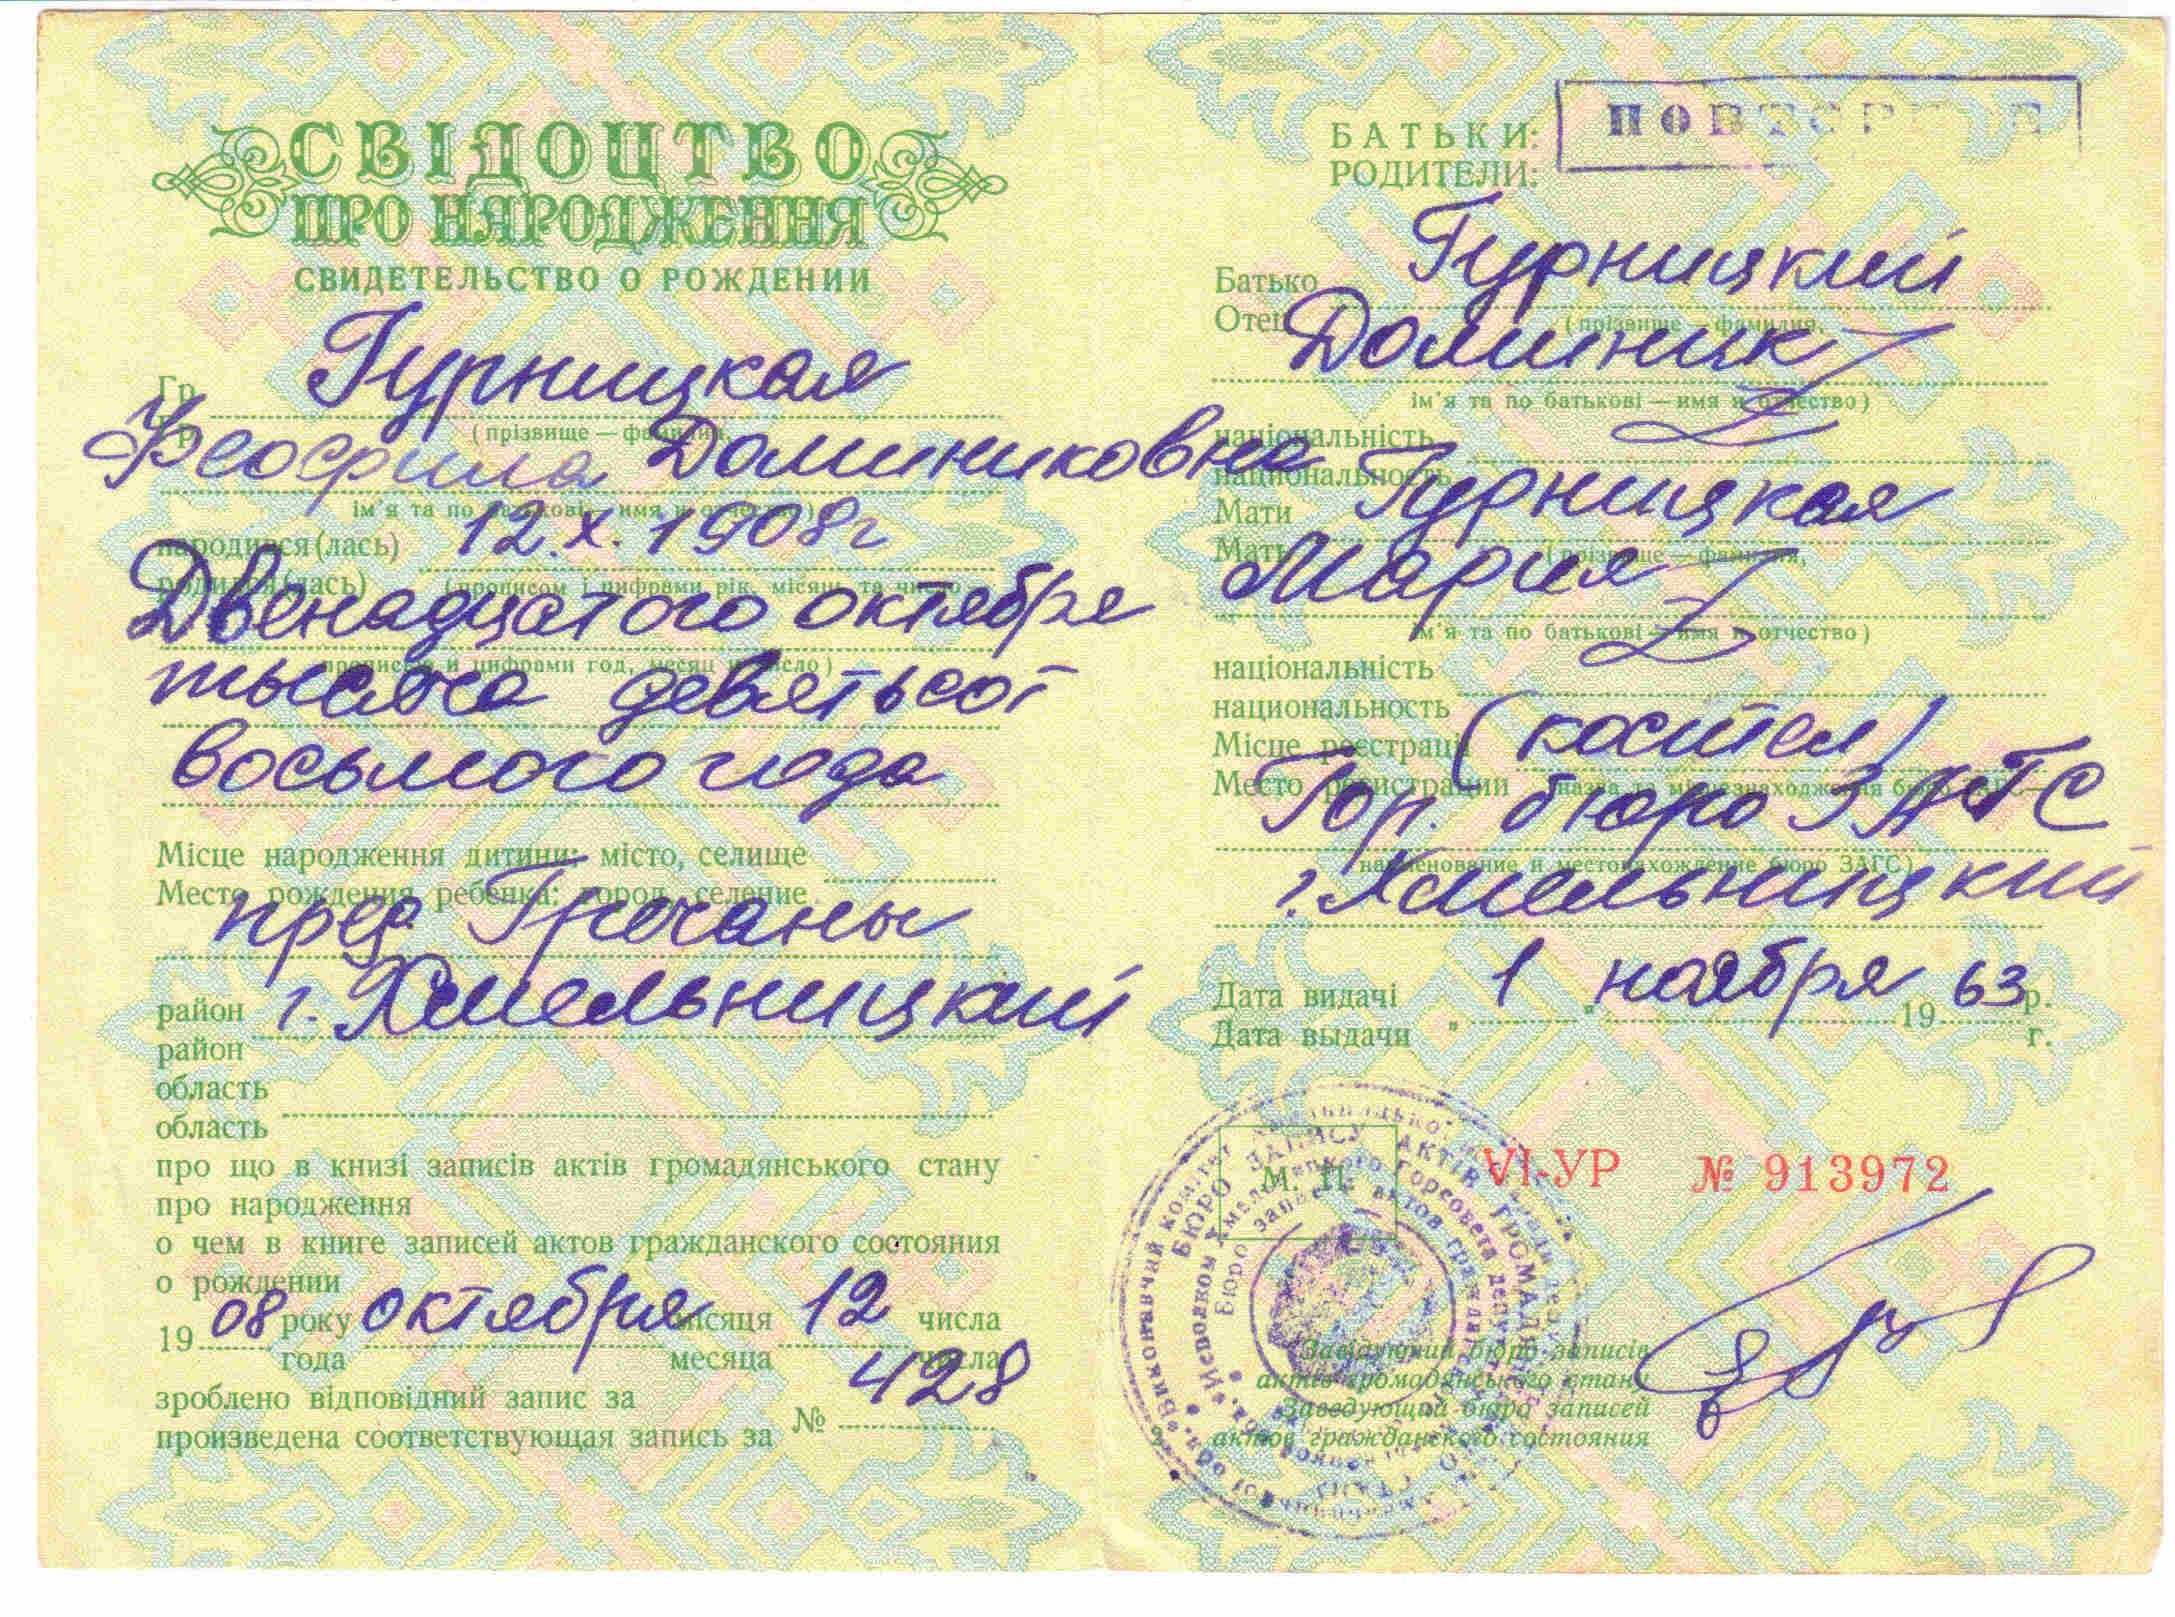 СВІДОЦТВО
ПРО НАРОДЖЕННЯ
СВИДЕТЕЛЬСТВО О РОЖДЕНИИ
Гр. Гурницкая
Гр. (прізвище — фамилия,
Феофила Доминиковна
ім'я та по батькові — имя и отчество)
народився (лась) 12.X.1908 г
родился (лась) (прописом і цифрами рік, місяць та число
Двенадцатого октября
прописью и цифрами год, месяц и число)
тысяча девятьсот
восьмого года
Місце народження дитини: місто, селище
Место рождения ребенка: город, селение
пред. Гречаны
район г. Хмельницкий
район
область
область
про що в книзі записів актів громадянського стану
про народження
о чем в книге записей актов гражданского состояния
о рождении
19 08 року октября місяця 12 числа
года месяца числа
зроблено відповідний запис за
произведена соответствующая запись за № 428
ПОВТОРНОЕ
БАТЬКИ:
РОДИТЕЛИ:
Батько Гурницкий
Отец (прізвище — фамилия,
Доминик
ім'я та по батькові — имя и отчество)
національність
национальность
Мати Гурницкая
Мать (прізвище — фамилия,
Мария
ім'я та по батькові — имя и отчество)
національність
национальность
Місце реєстрації (костел)
Место регистрации (назва та місцезнаходження бюро ЗАГС—
Гор. бюро ЗАГС
наименование и местонахождение бюро ЗАГС)
г. Хмельницкий
Дата видачі 1 ноября 19 63 р.
Дата выдачи г.
М. П.
VI-УР № 913972
Завідуючий бюро записів
актів громадянського стану
Заведующий бюро записей
актов гражданского состояния
Виконавчий комітет
БЮРО ЗАПИСУ АКТІВ ГРОМАДЯН
Исполком Хмельницкого горсовета
Бюро записи актов граждан